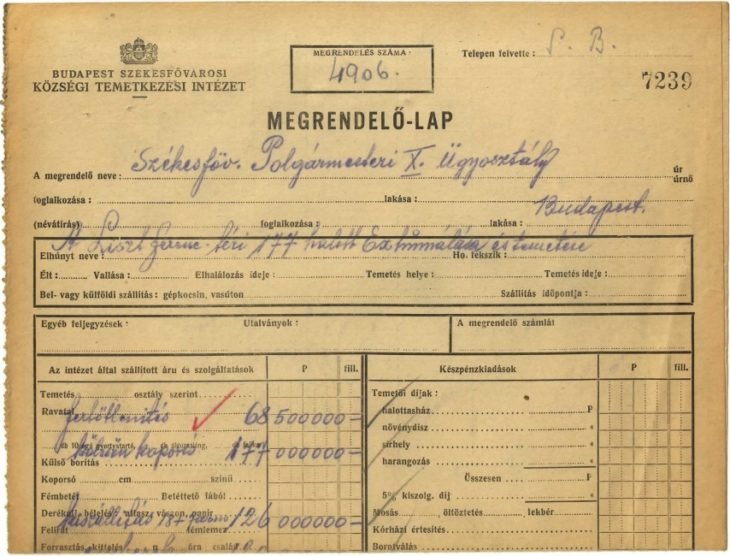 BUDAPEST SZÉKESFŐVÁROSI
KÖZSÉGI TEMETKEZÉSI INTÉZET
MEGRENDELÉS SZÁMA:
4906.
Telepen felvette: P. B.
7239
MEGRENDELŐ-LAP
A megrendelő neve: Székesföv. Polgármesteri X. Ügyosztály úr
úrnő
foglalkozása: lakása: Budapest.
(névátírás) foglalkozása: lakása:
A Liszt Ferenc-téri 177 halott Exhumálása és temetése
Elhúnyt neve: Ho. fekszik:
Élt: Vallása: Elhalálozás ideje: Temetés helye: Temetés ideje:
Bel- vagy külföldi szállítás: gépkocsin, vasúton Szállítás időpontja:
Egyéb feljegyzések: Utalványok: A megrendelő számlát
Az intézet által szállított áru és szolgáltatások P fill.
Temetés osztály szerint
Ravatal
fertőtlenités 68 500000=
177 000000=
Külső borítás
Koporsó cm színű
Fémbetét Betéttető fából
kiszállitás 126 000000=
Felirat fémlemez
Készpénzkiadások P fill.
Temetői díjak:
halottasház P
növénydísz "
sírhely "
harangozás "
Összesen P
5% kiszolg. díj "
Mosás öltöztetés lekbér
Kórházi értesítés
Borniválás